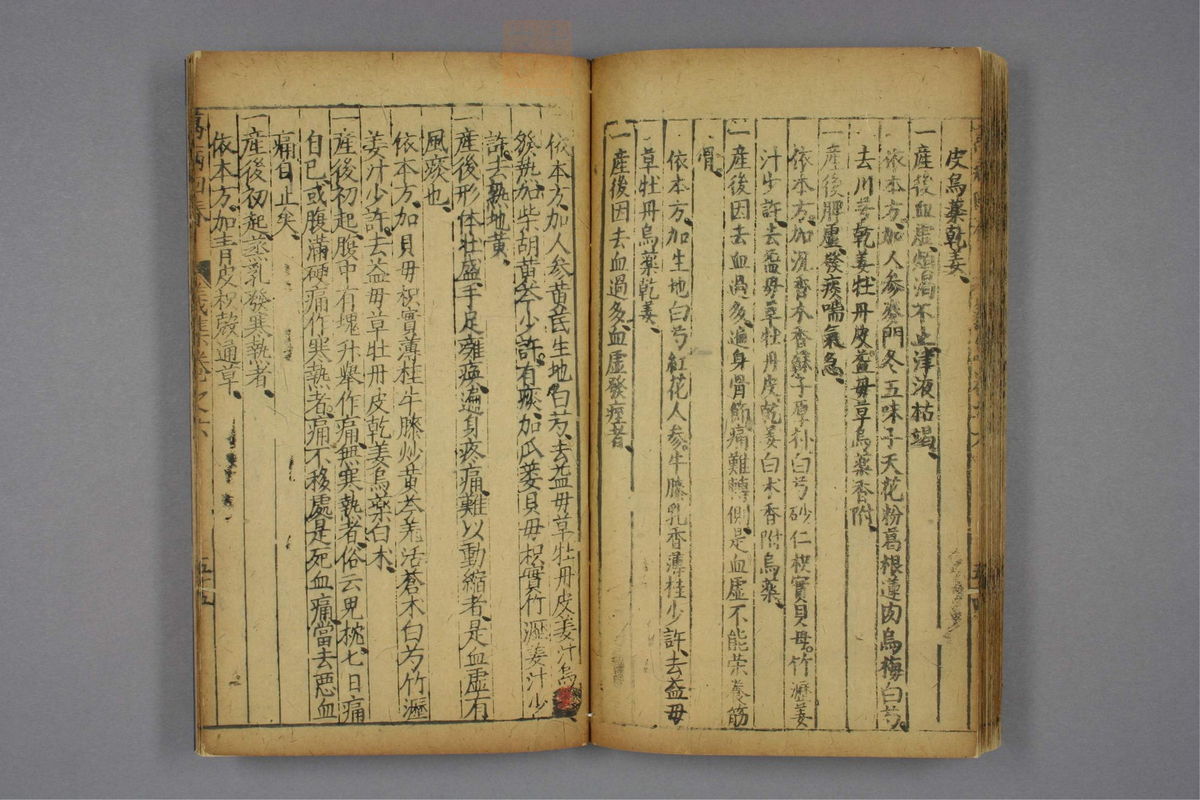 皮烏藥乾姜
一產後血虛煩渴不止津液枯竭
依本方加人參麥門冬五味子天花粉葛根蓮肉烏梅白芍
去川芎乾姜牡丹皮益母草烏藥香附
一產後脾虛發痰喘氣急
依本方加沉香木香蘇子厚朴白芍砂仁枳實貝母竹瀝姜
汁少許去益母草牡丹皮乾姜白术香附烏藥
一產後因去血過多遍身骨節痛難轉側是血虛不能荣養筋
骨
依本方加生地白芍紅花人參牛膝乳香薄桂少許去益母
草牡丹烏藥乾姜
一產後因去血過多血虛發痙者
依本方加人參黃芪生地白芍去益母草牡丹皮姜汁烏
發熱加柴胡黃芩少許有痰加瓜蔞貝母枳實竹瀝姜汁少
許去熟地黃
一產後形体壮盛手足癱瘓遍身疼痛難以動縮者是血虛有
風痰也
依本方加貝母枳實薄桂牛膝炒黃芩羌活蒼术白芍竹瀝
姜汁少許去益母草牡丹皮乾姜烏藥白术
一產後初起腹中有塊升舉作痛無寒熱者俗云児枕七日痛
自已或腹滿硬痛作寒熱者痛不移處是死血痛當去惡血
痛自止矣
一產後初起蒸乳發寒熱者
依本方加青皮枳殼通草
萬病回春
卷之六
五十五